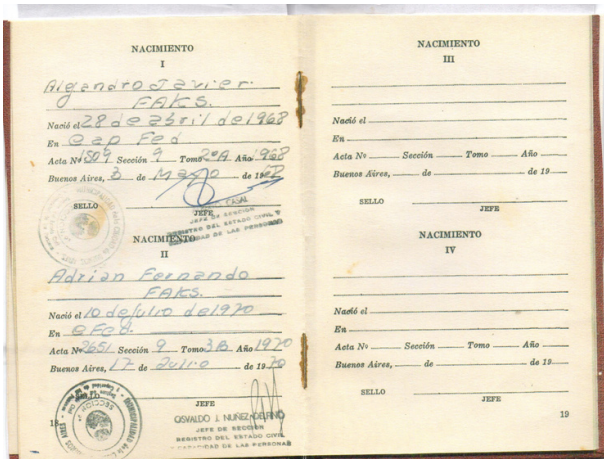 NACIMIENTO
I
Alejandro Javier
FAKS.
Nació el 28 de abril de 1968
En Cap Fed
Acta Nº 1509 Sección 9 Tomo 2ºA Año 1968
Buenos Aires, 3 de Mayo de 1968
SELLO
JEFE
CASAL
JEFE DE SECCION
REGISTRO DEL ESTADO CIVIL Y
CAPACIDAD DE LAS PERSONAS
NACIMIENTO
II
Adrian Fernando
FAKS.
Nació el 10 de Julio de 1970
En C Fed.
Acta Nº 2651 Sección 9 Tomo 3B Año 1970
Buenos Aires, 17 de Julio de 1970
JEFE
SECCION
OSVALDO J. NUÑEZ DELFINO
JEFE DE SECCION
REGISTRO DEL ESTADO CIVIL
CAPACIDAD DE LAS PERSONAS
18
NACIMIENTO
III
Nació el
En
Acta Nº Sección Tomo Año
Buenos Aires, de de 19
SELLO
JEFE
NACIMIENTO
IV
Nació el
En
Acta Nº Sección Tomo Año
Buenos Aires, de de 19
SELLO
JEFE
19